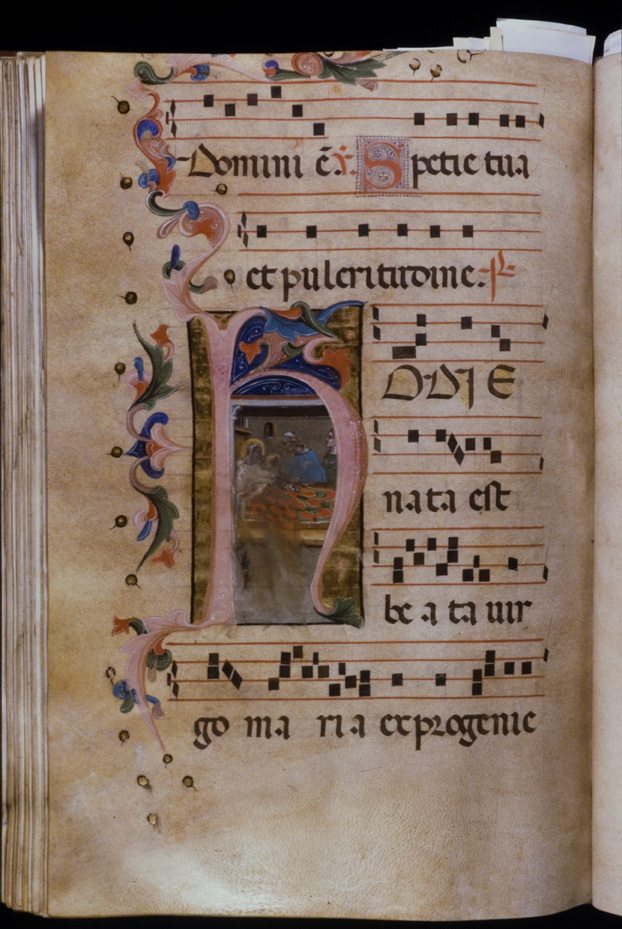 Domini ē. ℟. Spetie tua
et pulcritudine. ℟
HODIE
nata est
be a ta uir
go ma ria exprogenie